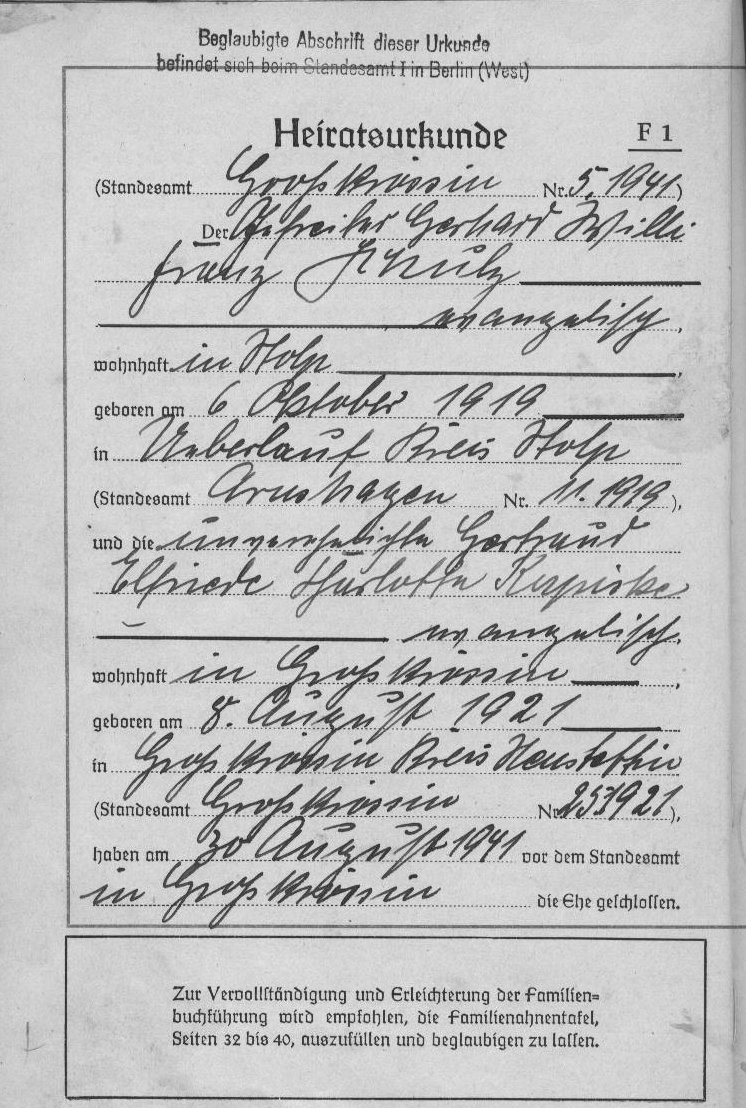 Beglaubigte Abschrift dieser Urkunde
befindet sich beim Standesamt I in Berlin (West)
Heiratsurkunde F 1
(Standesamt Großkrössin Nr. 5. 1941)
Der Gefreiter Gerhard Willi
Franz Schulz
evangelisch,
wohnhaft in Stolp,
geboren am 6 Oktober 1919
in Ueberlauf Kreis Stolp
(Standesamt Arnshagen Nr. 11. 1919),
und die unverehelichte Gertraud
Elfriede Charlotte
evangelisch,
wohnhaft in Großkrössin,
geboren am 8. August 1921
in Großkrössin Kreis Neustettin
(Standesamt Großkrössin Nr. 1921),
haben am 30 August 1941 vor dem Standesamt
in Großkrössin die Ehe geschlossen.
Zur Vervollständigung und Erleichterung der Familien=
buchführung wird empfohlen, die Familienahnentafel,
Seiten 32 bis 40, auszufüllen und beglaubigen zu lassen.